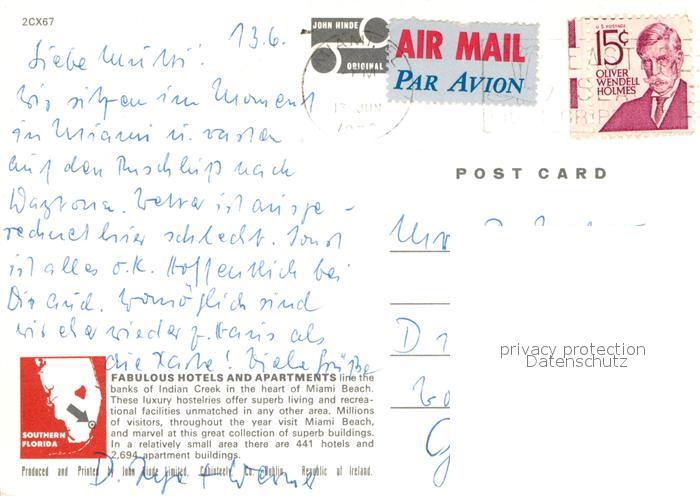 2CX67
13.6.
JOHN HINDE
ORIGINAL
AIR MAIL
PAR AVION
U.S. POSTAGE
15¢
OLIVER
WENDELL
HOLMES
13 JUN
Liebe Mutti!
Wir sitzen im Moment
in Miami u. warten
auf den Anschluß nach
Daytona. Wetter ist ausge-
rechnet hier schlecht. Sonst
ist alles o.K. Hoffentlich bei
Dir auch. Womöglich sind
wir eher wieder z. Haus als
die Karte! Viele Grüße
POST CARD
privacy protection
Datenschutz
SOUTHERN
FLORIDA
FABULOUS HOTELS AND APARTMENTS line the
banks of Indian Creek in the heart of Miami Beach.
These luxury hostelries offer superb living and recrea-
tional facilities unmatched in any other area. Millions
of visitors, throughout the year visit Miami Beach,
and marvel at this great collection of superb buildings.
In a relatively small area there are 441 hotels and
2,694 apartment buildings.
Produced and Printed by John Hinde Limited, Cabinteely, Co. Dublin, Republic of Ireland.